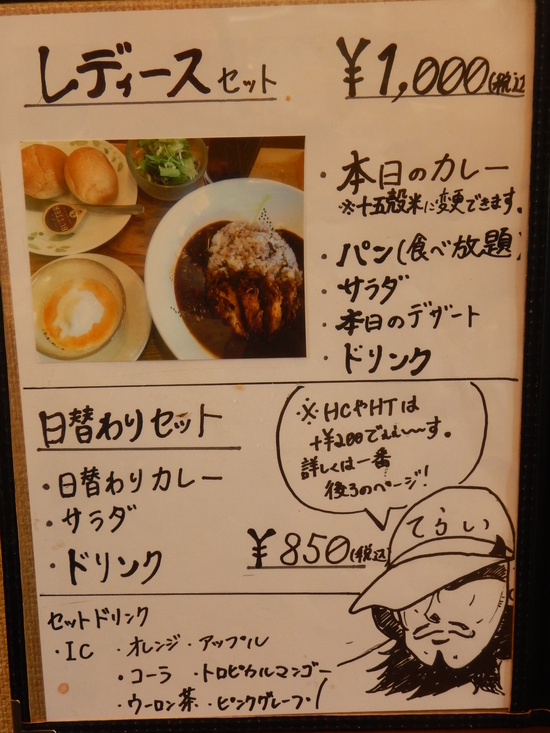 レディースセット ¥1,000(税込
・本日のカレー
※十五穀米に変更できます。
・パン(食べ放題)
・サラダ
・本日のデザート
・ドリンク
日替わりセット
・日替わりカレー
・サラダ
・ドリンク
¥850(税込)
※HCやHTは
+¥200でぇぇ〜〜す。
詳しくは一番
後ろのページ!
てらい
セットドリンク
・IC ・オレンジ・アップル
・コーラ ・トロピカルマンゴー
・ウーロン茶・ピンクグレープ